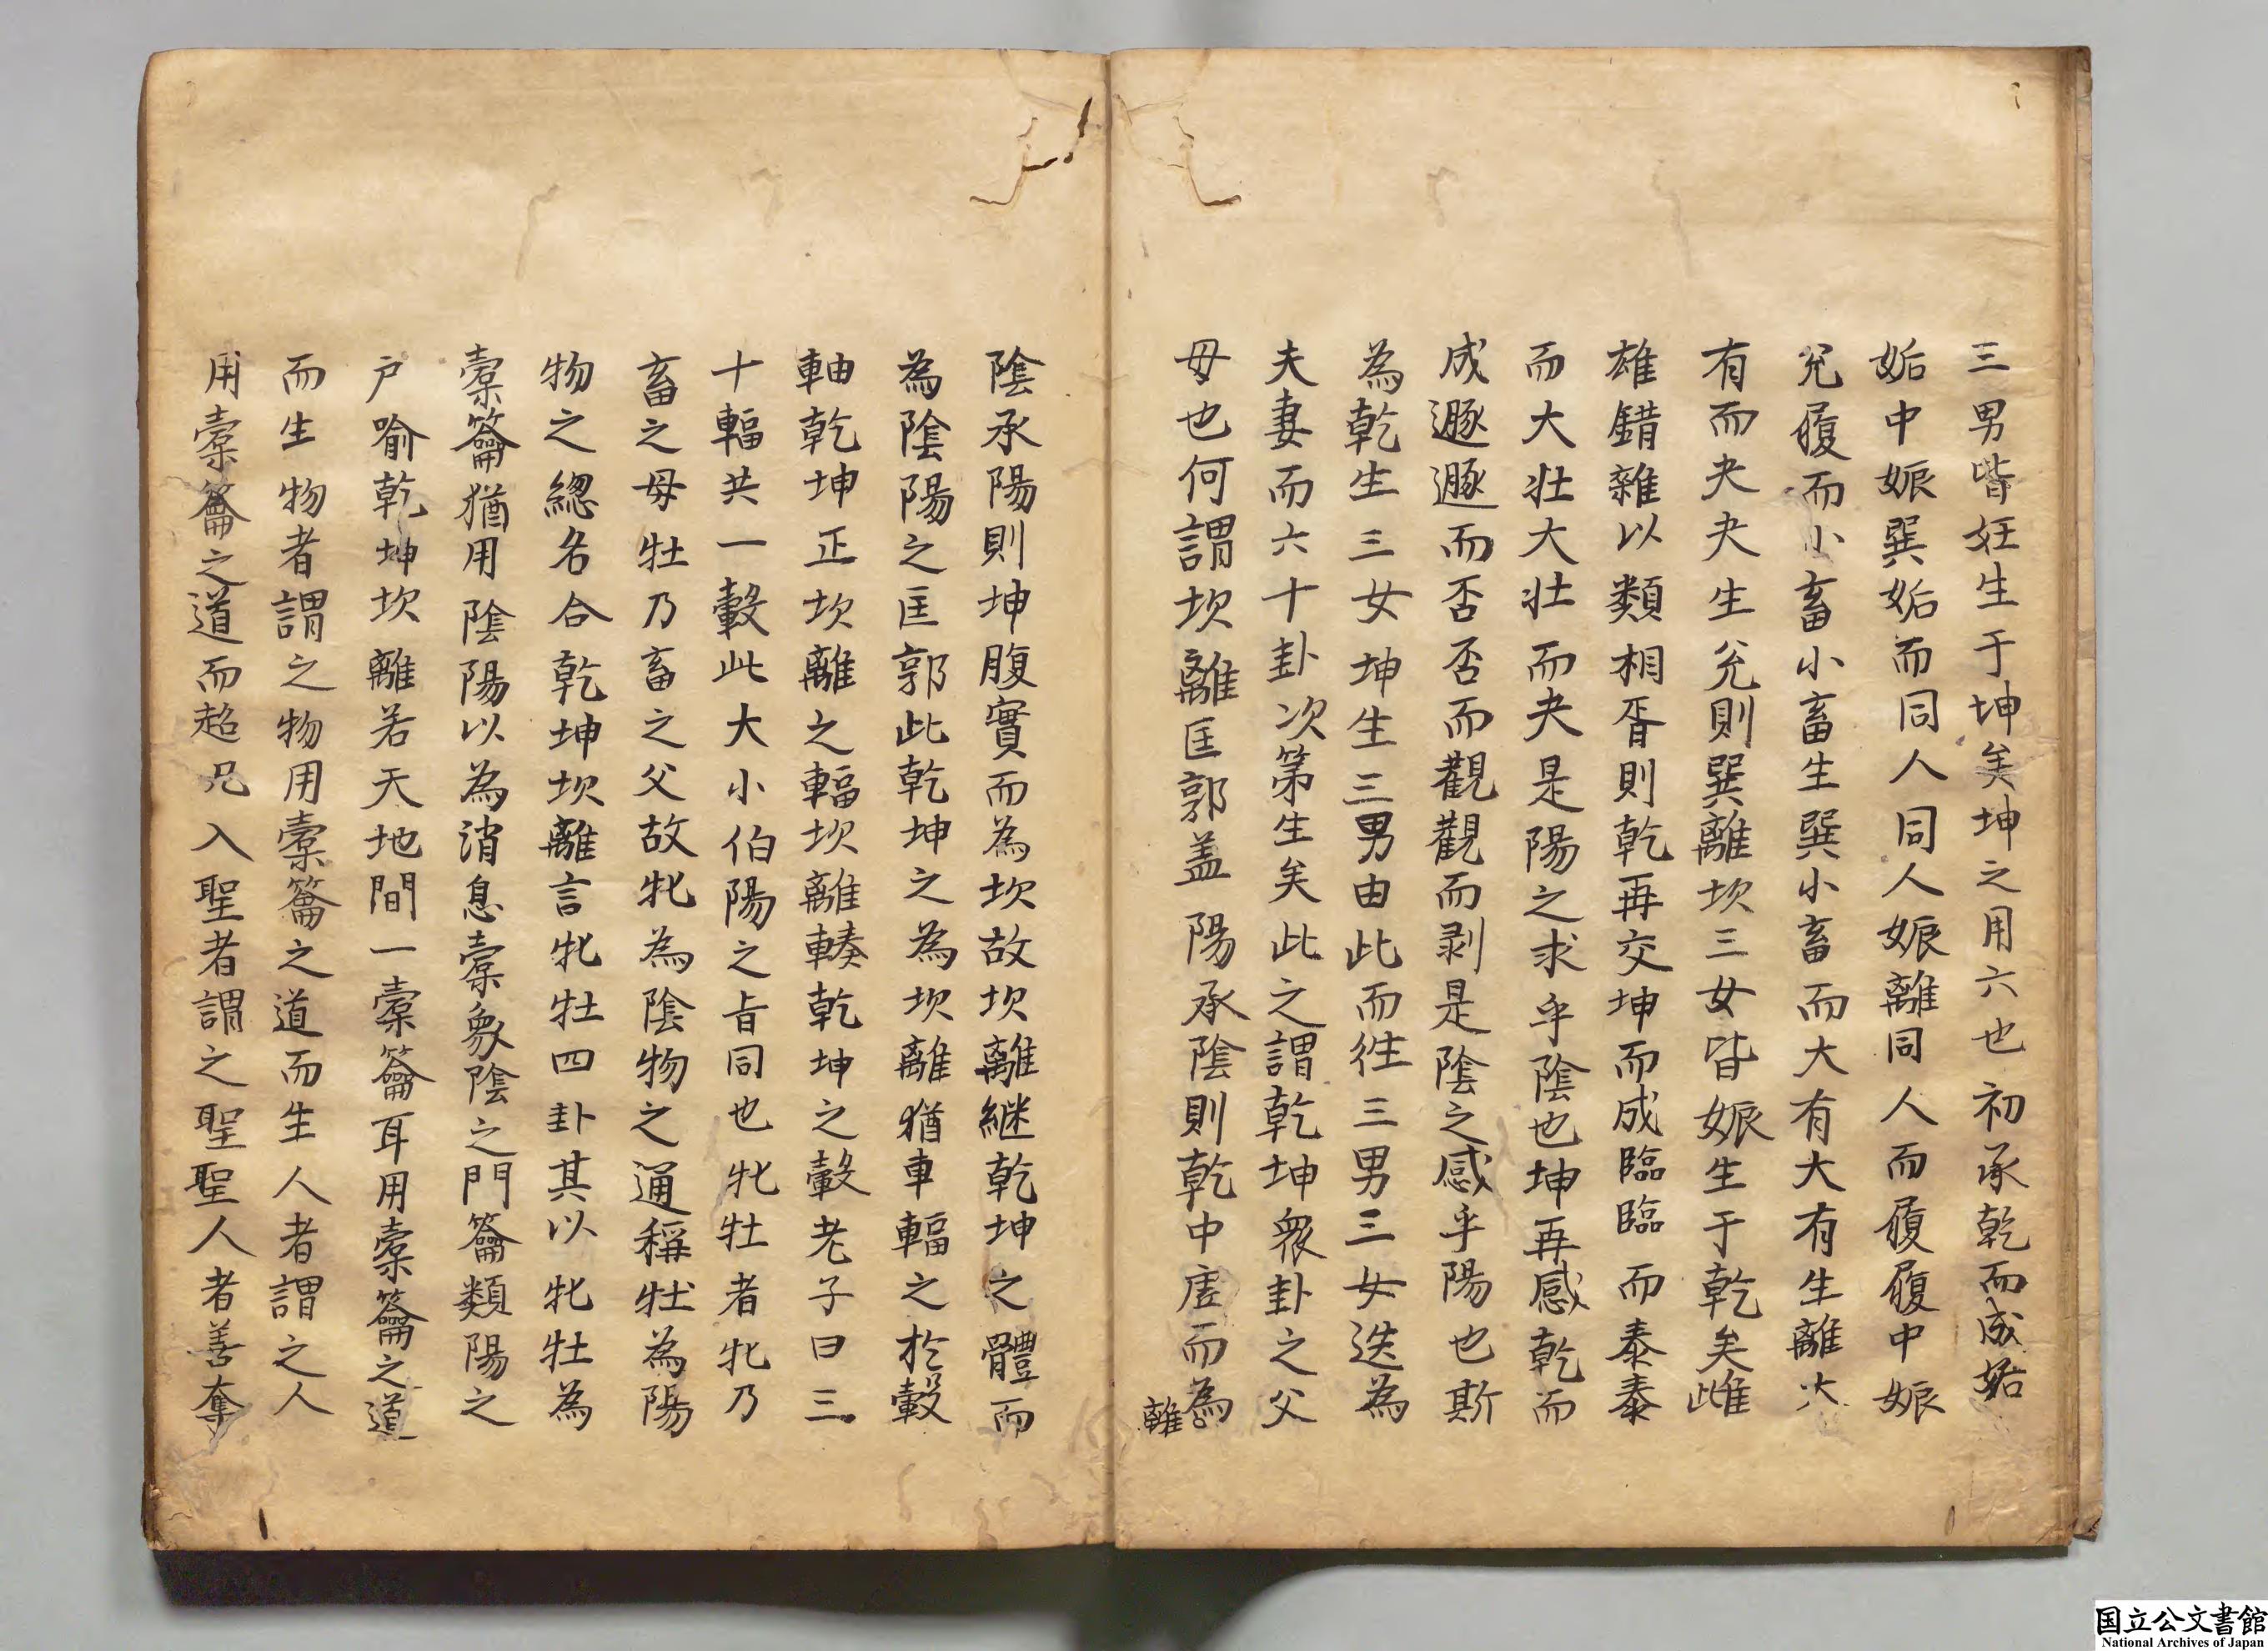 三男皆妊生于坤矣坤之用六也初承乾而成姤
姤中娠巽姤而同人同人娠離同人而履履中娠
兊履而小畜小畜生巽小畜而大有大有生離大
有而夬夬生兊則巽離坎三女皆娠生于乾矣雌
雄錯雜以類相胥則乾再交坤而成臨臨而泰泰
而大壮大壮而夬是陽之求乎陰也坤再感乾而
成遯遯而否否而觀觀而剥是陰之感乎陽也斯
為乾生三女坤生三男由此而徃三男三女迭為
夫妻而六十卦次第生矣此之謂乾坤衆卦之父
母也何謂坎離匡郭盖陽承陰則乾中虗而為
離
陰承陽則坤腹實而為坎故坎離継乾坤之體而
為陰陽之匡郭此乾坤之為坎離猶車輻之於轂
軸乾坤正坎離之輻坎離輳乾坤之轂老子曰三
十輻共一轂此大小伯陽之㫖同也牝牡者牝乃
畜之母牡乃畜之父故牝為陰物之通稱牡為陽
物之緫名合乾坤坎離言牝牡四卦其以牝牡為
槖籥猶用陰陽以為消息槖象陰之門籥類陽之
戶喻乾坤坎離若天地間一槖籥耳用槖籥之道
而生物者謂之物用槖籥之道而生人者謂之人
用槖籥之道而超凡入聖者謂之聖聖人者善奪
国立公文書館
National Archives of Japan